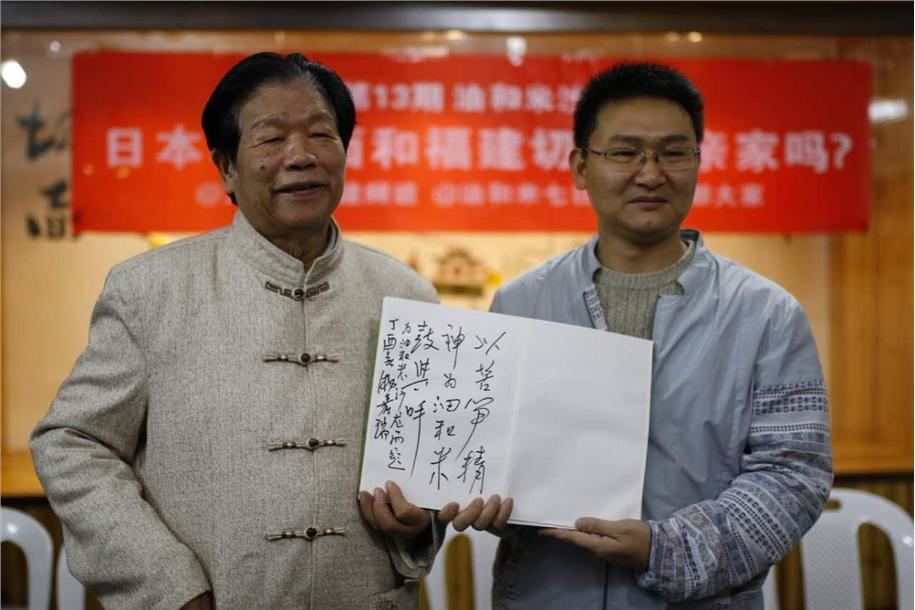 第13期 油和米沙
日本 面和福建切 亲家吗?
建频道 @油和米七 大家
以苦笋精
神为油和米
鼓與呼
为油和米沙龙而题
丁酉春 嘉瑞